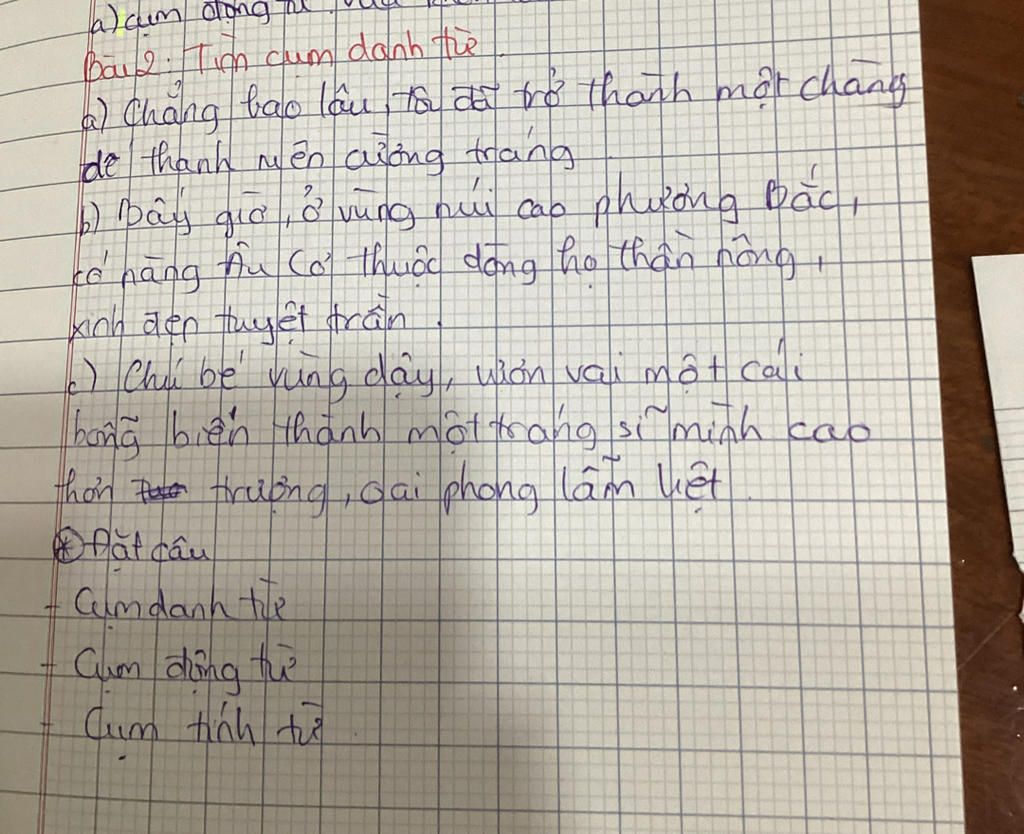 a) cụm động từ
Bài 2: Tìm cụm danh từ.
a) Chẳng bao lâu, tôi đã trở thành một chàng
dế thanh niên cường tráng
b) Bấy giờ, ở vùng núi cao phương Bắc,
có nàng Âu Cơ thuộc dòng họ thần nông,
xinh đẹp tuyệt trần.
c) Chú bé vùng dậy, vươn vai một cái
bỗng biến thành một tráng sĩ mình cao
hơn trượng, oai phong lẫm liệt.
* Đặt câu
- Cụm danh từ
- Cụm động từ
- Cụm tính từ.